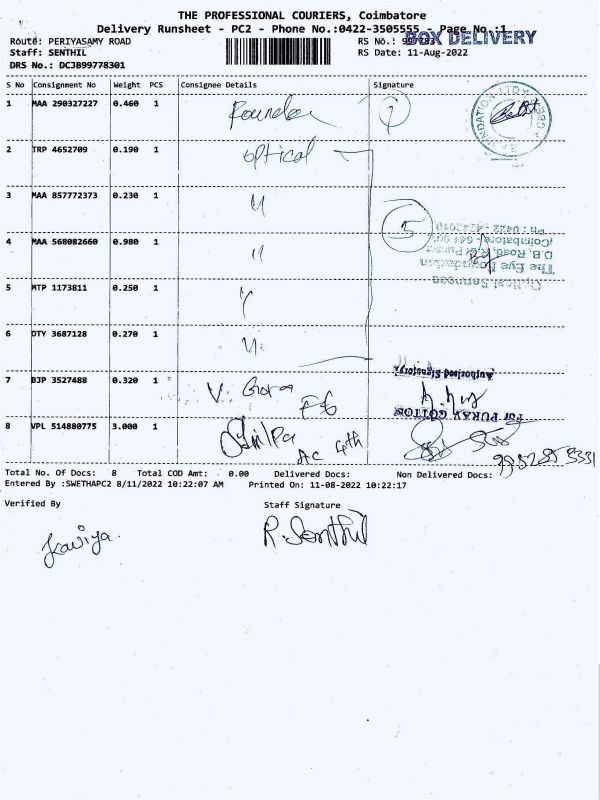 THE PROFESSIONAL COURIERS, Coimbatore
Delivery Runsheet - PC2 - Phone No.:0422-3505555 - Page No.:1
BOX DELIVERY
Route: PERIYASAMY ROAD RS No.:
Staff: SENTHIL RS Date: 11-Aug-2022
DRS No.: DCJB99778301
S No Consignment No Weight PCS Consignee Details Signature
1 MAA 290327227 0.460 1
2 TRP 4652709 0.190 1 optical
3 MAA 857772373 0.230 1 "
4 MAA 568082660 0.980 1 "
5 MTP 1173811 0.250 1 "
5
The Eye Foundation
6 DTY 3687128 0.270 1 "
Authorised Signatory
7 BJP 3527488 0.320 1
For PURAV COTTON
8 VPL 514880775 3.000 1 Shilpa
Total No. Of Docs: 8 Total COD Amt: 0.00 Delivered Docs: Non Delivered Docs:
Entered By :SWETHAPC2 8/11/2022 10:22:07 AM Printed On: 11-08-2022 10:22:17
Verified By Staff Signature
Kaviya R. Senthil